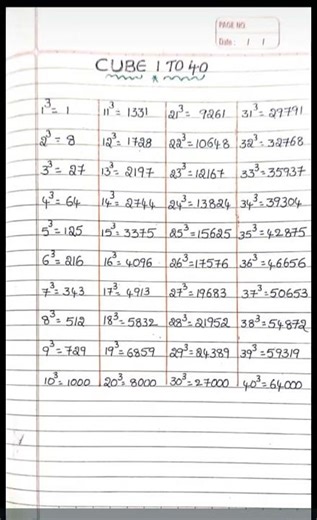 PAGE NO.
Date: / /
CUBE 1 TO 40
1³= 1 11³= 1331 21³= 9261 31³= 29791
2³= 8 12³= 1728 22³=10648 32³= 32768
3³= 27 13³= 2197 23³=12167 33³= 35937
4³= 64 14³= 2744 24³= 13824 34³= 39304
5³= 125 15³= 3375 25³=15625 35³= 42875
6³= 216 16³= 4096 26³=17576 36³= 46656
7³= 343 17³= 4913 27³= 19683 37³= 50653
8³= 512 18³= 5832 28³= 21952 38³= 54872
9³= 729 19³= 6859 29³= 24389 39³= 59319
10³= 1000 20³= 8000 30³= 27000 40³= 64000